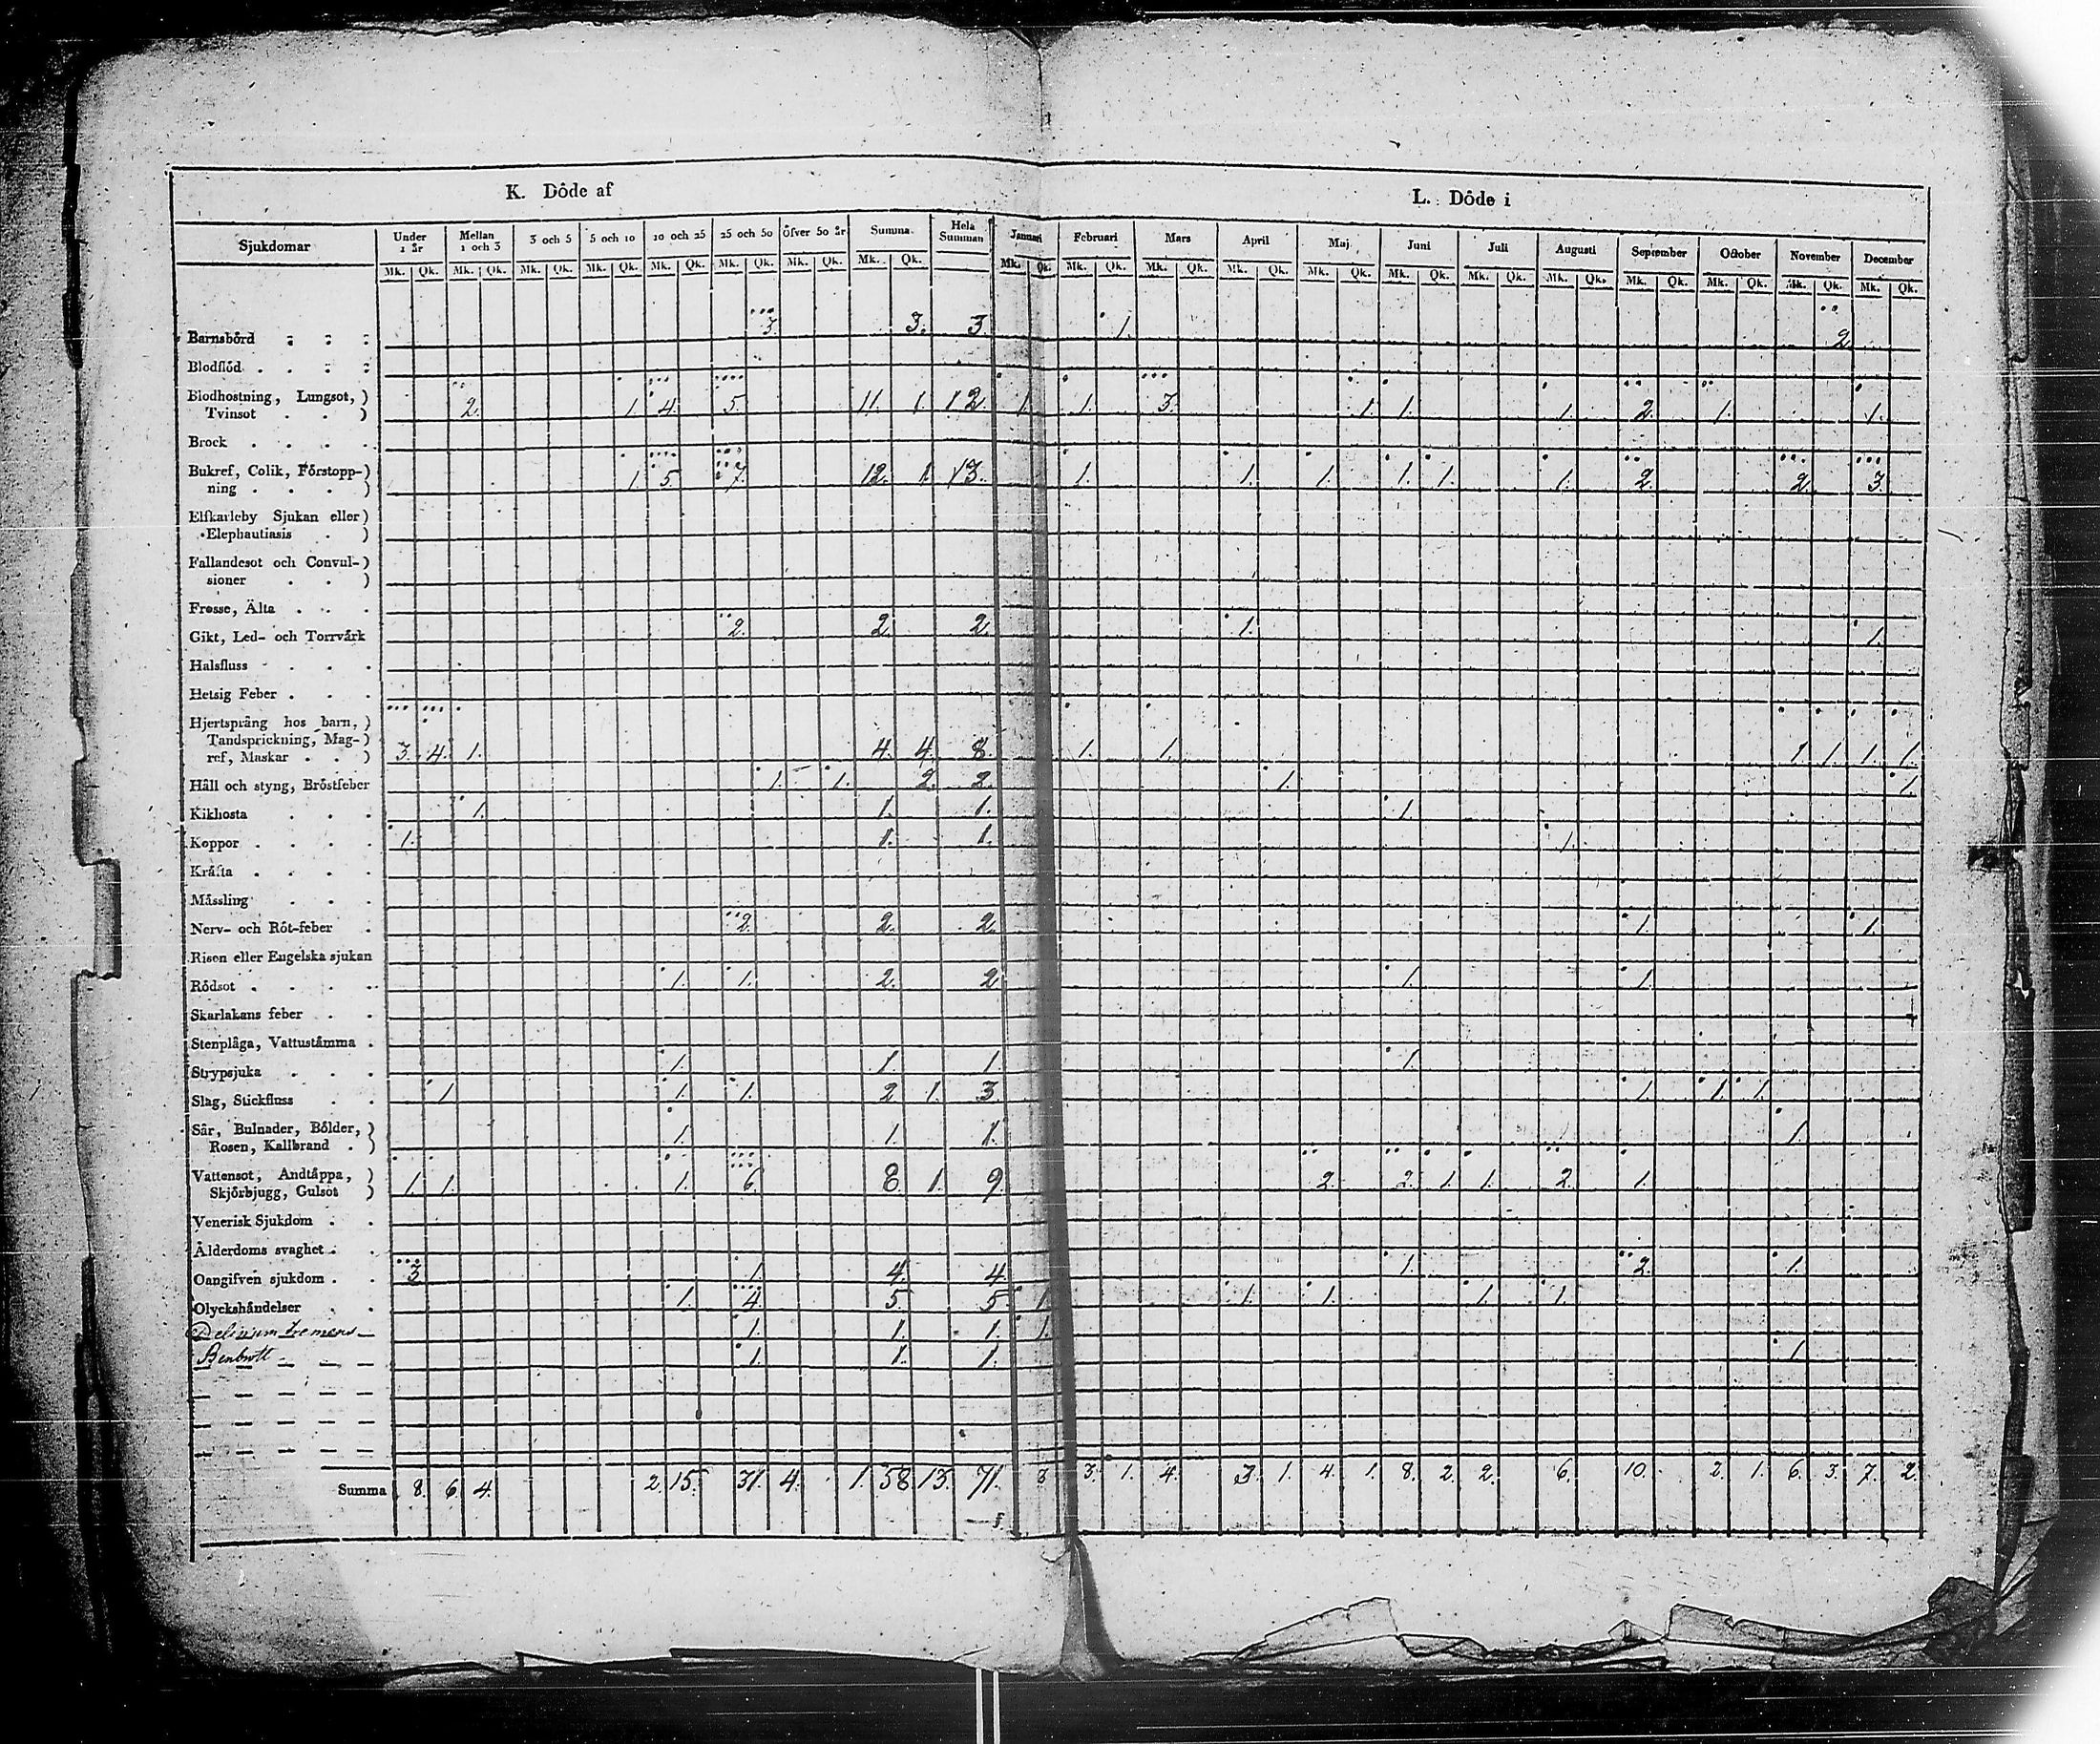 K. Döde af L. Döde i
Sjukdomar Under 1 år Mellan 1 och 3 3 och 5 5 och 10 10 och 25 25 och 50 Öfver 50 år Summa. Hela Summan Januari Februari Mars April Maj Juni Juli Augusti September October November December
Mk. Qk. Mk. Qk. Mk. Qk. Mk. Qk. Mk. Qk. Mk. Qk. Mk. Qk. Mk. Qk. Mk. Qk. Mk. Qk. Mk. Qk. Mk. Qk. Mk. Qk. Mk. Qk. Mk. Qk. Mk. Qk. Mk. Qk. Mk. Qk. Mk. Qk. Mk. Qk.
Barnsbörd 3. 3. 3 1. 2.
Blodflöd
Blodhostning, Lungsot, )
Tvinsot ) 2. 1. 4. 5. 11. 1. 12. 1. 1. 3. 1. 1. 1. 2. 1. 1.
Brock
Bukref, Colik, Förstopp-)
ning ) 1. 5. 7. 12. 1. 13. 1. 1. 1. 1. 1. 1. 2. 2. 3.
Elfkarleby Sjukan eller)
Elephautiasis )
Fallandesot och Convul-)
sioner )
Frosse, Älta
Gikt, Led- och Torrvärk 2. 2. 2. 1. 1.
Halsfluss
Hetsig Feber
Hjertsprång hos barn, )
Tandsprickning, Mag-)
ref, Maskar ) 3. 4. 1. 4. 4. 8. 1. 1. 1. 1. 1. 1.
Håll och styng, Bröstfeber 1. 1. 2. 2. 1. 1.
Kikhosta 1. 1. 1. 1.
Koppor 1. 1. 1. 1.
Kräfta
Måssling
Nerv- och Röt-feber 2. 2. 2. 1. 1.
Risen eller Engelska sjukan
Rödsot 1. 1. 2. 2. 1. 1.
Skarlakans feber
Stenplåga, Vattustämma
Strypsjuka 1. 1. 1. 1.
Slag, Stickfluss 1 1. 1. 2 1. 3. 1. 1. 1.
Sår, Bulnader, Bölder, )
Rosen, Kallbrand ) 1. 1. 1. 1.
Vattensot, Andtåppa, )
Skjörbjugg, Gulsot ) 1. 1. 1. 6. 8. 1. 9. 2. 2. 1. 1. 2. 1.
Venerisk Sjukdom
Ålderdoms svaghet
Oangifven sjukdom 3 1. 4. 4. 1. 2. 1.
Olyckshändelser 1. 4. 5. 5. 1. 1. 1. 1. 1.
Delirium tremens 1. 1. 1. 1.
Benbrott 1. 1. 1. 1.
Summa 8. 6. 4. 2. 15. 31. 4. 1. 58. 13. 71. 3 3. 1. 4. 3. 1. 4. 1. 8. 2. 2. 6. 10. 2. 1. 6. 3. 7. 2.